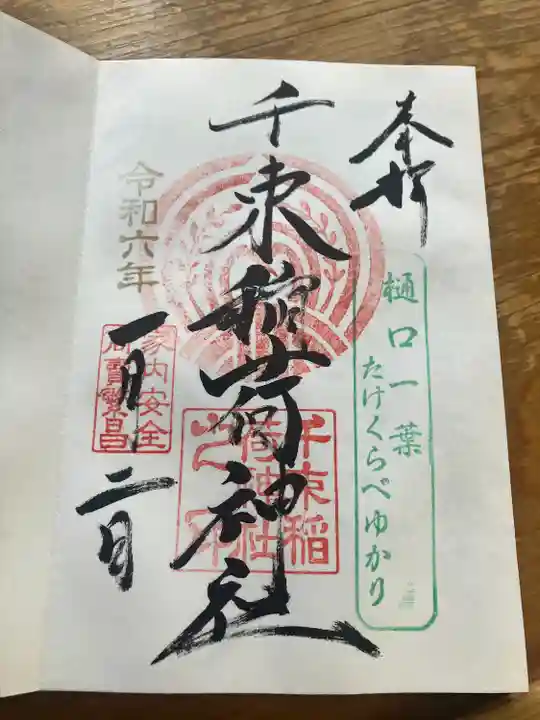 奉拝
樋口一葉
たけくらべゆかり
千束稲荷神社
千束稲
荷神社
之印
令和六年
一月二日
家内安全
商売繁昌